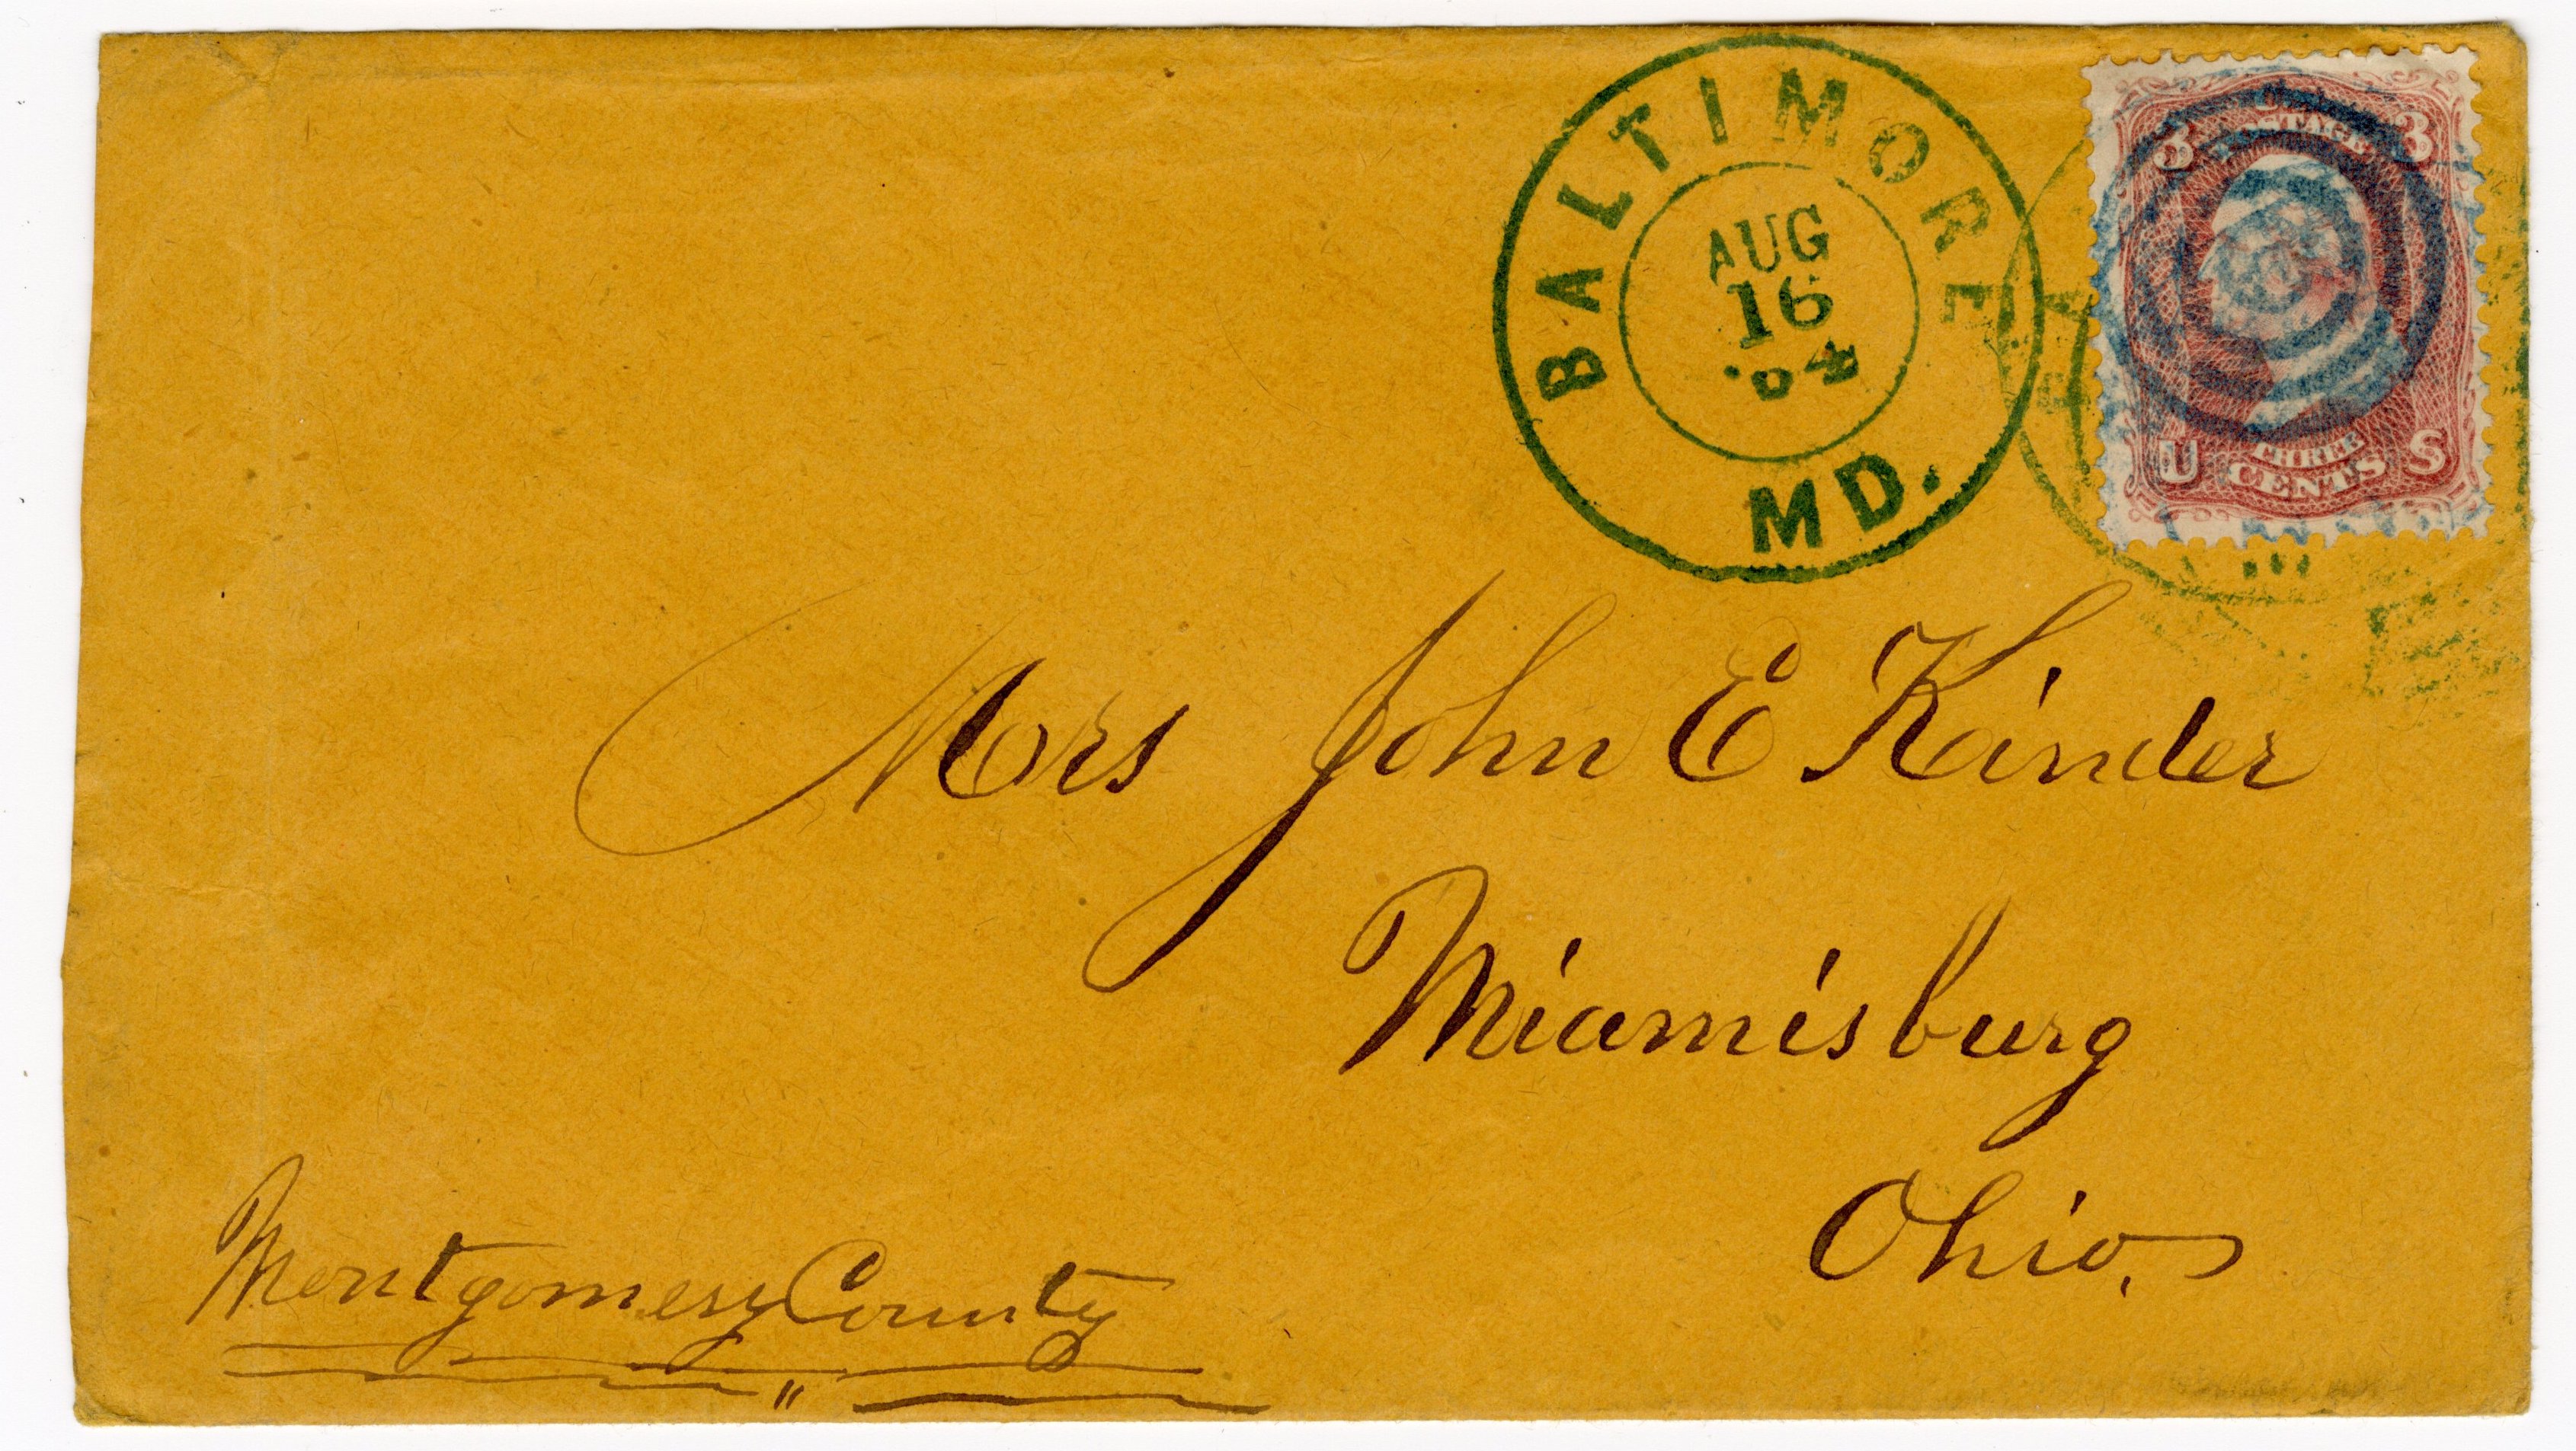 BALTIMORE
AUG
16
'64
MD.
U. S.
POSTAGE
3 3
U S
THREE
CENTS
Mrs John E Kinder
Miamisburg
Ohio.
Montgomery County
"